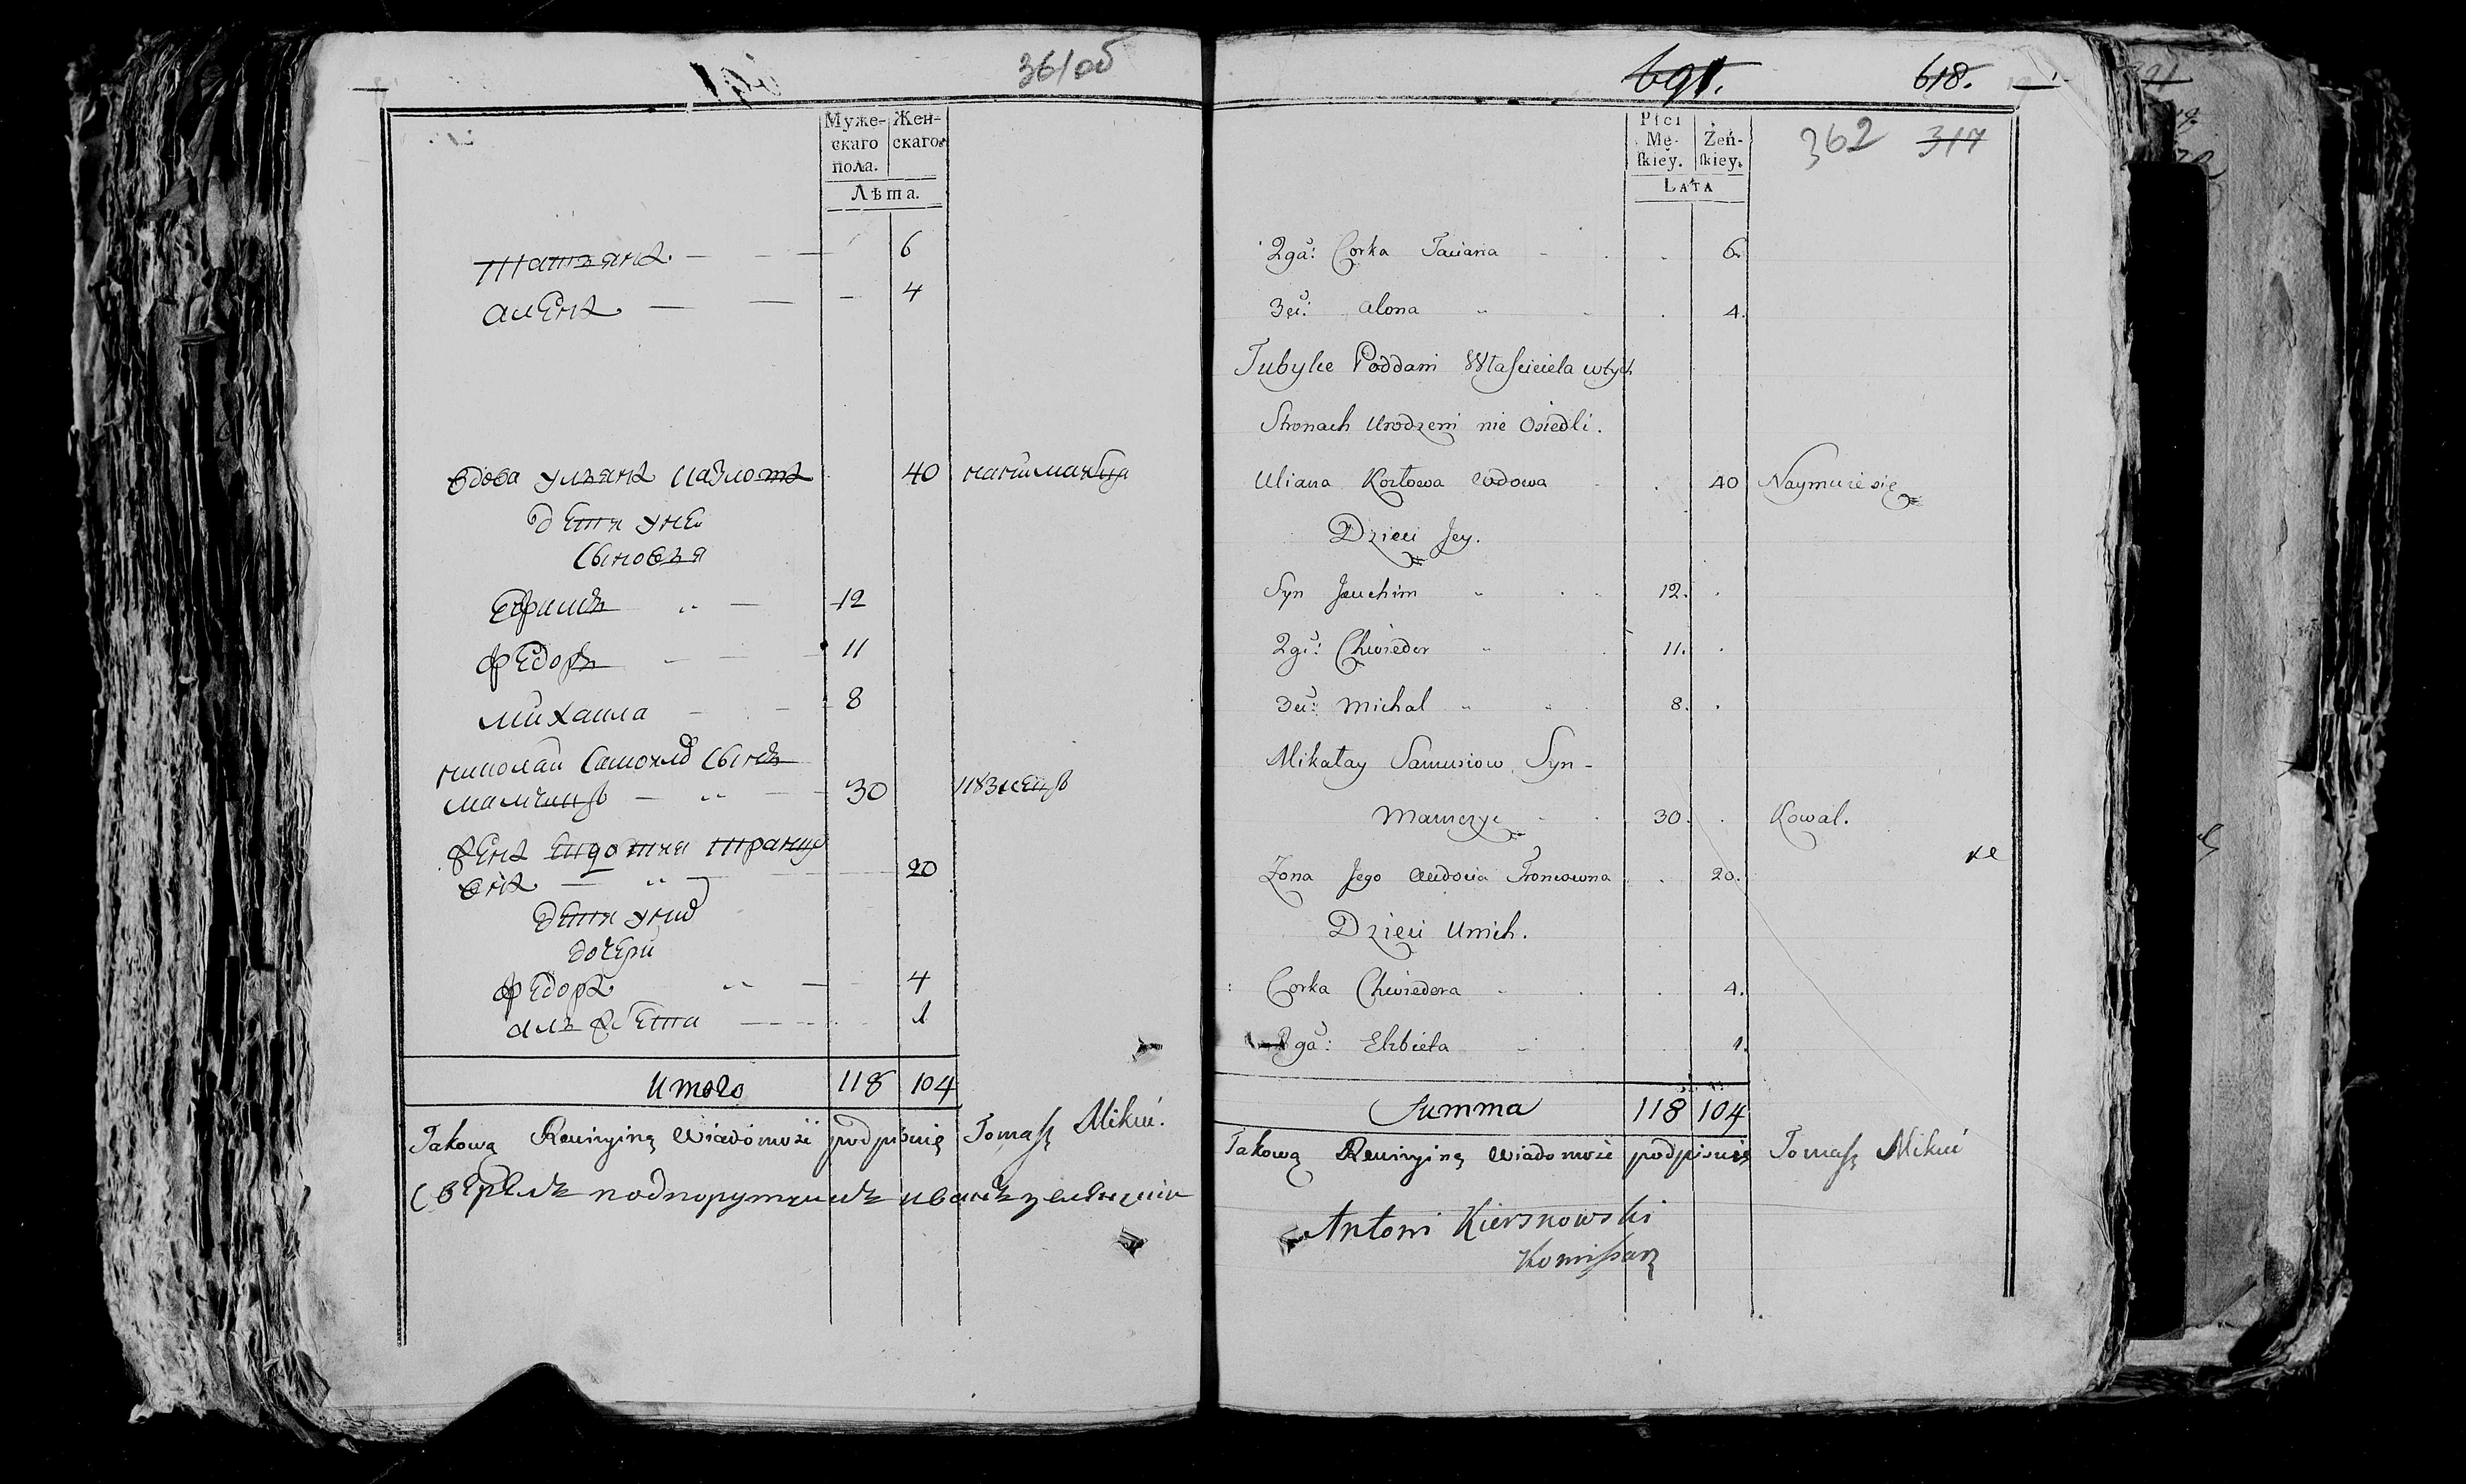 361 об
Муже-
скаго
пола.
Жен-
скаго.
Лѣта.
Татьяна. 6
алена 4
вдова ульяна 40
дети у нее
сыновья
Ефимъ 12
федоръ 11
михаила 8
николай самойлов сынъ
30
жена
20
дети у них
дочери
федора 4
1
Итого 118 104
Takową Rewizyiną Wiadomość podpisuię Tomasz Mikuć.
подпорутчикъ иванъ
691. 618.
362 317
Płci
Mę-
ſkiey.
Żeń-
ſkiey.
LATA
2ga: Corka Taciana 6.
3cia: Alona 4.
Tubylce Poddani Właściciela wtych
Stronach Urodzeni nie Osiedli.
Uliana Kozłowa Wdowa 40 Naymuie się
Dzieci Jey.
Syn Jauchim 12.
2gi: Chwiedor 11.
3ci: Michal 8.
Mikałay Samusiow Syn -
30. Kowal.
Żona Jego Audocia 20.
Dzieci Unich.
Corka Chwiedora 4.
2ga: Elzbieta 1.
Summa 118 104
Takową Rewizyiną Wiadomość podpisuię Tomasz Mikuć
Antoni Kiersnowski
Komissarz